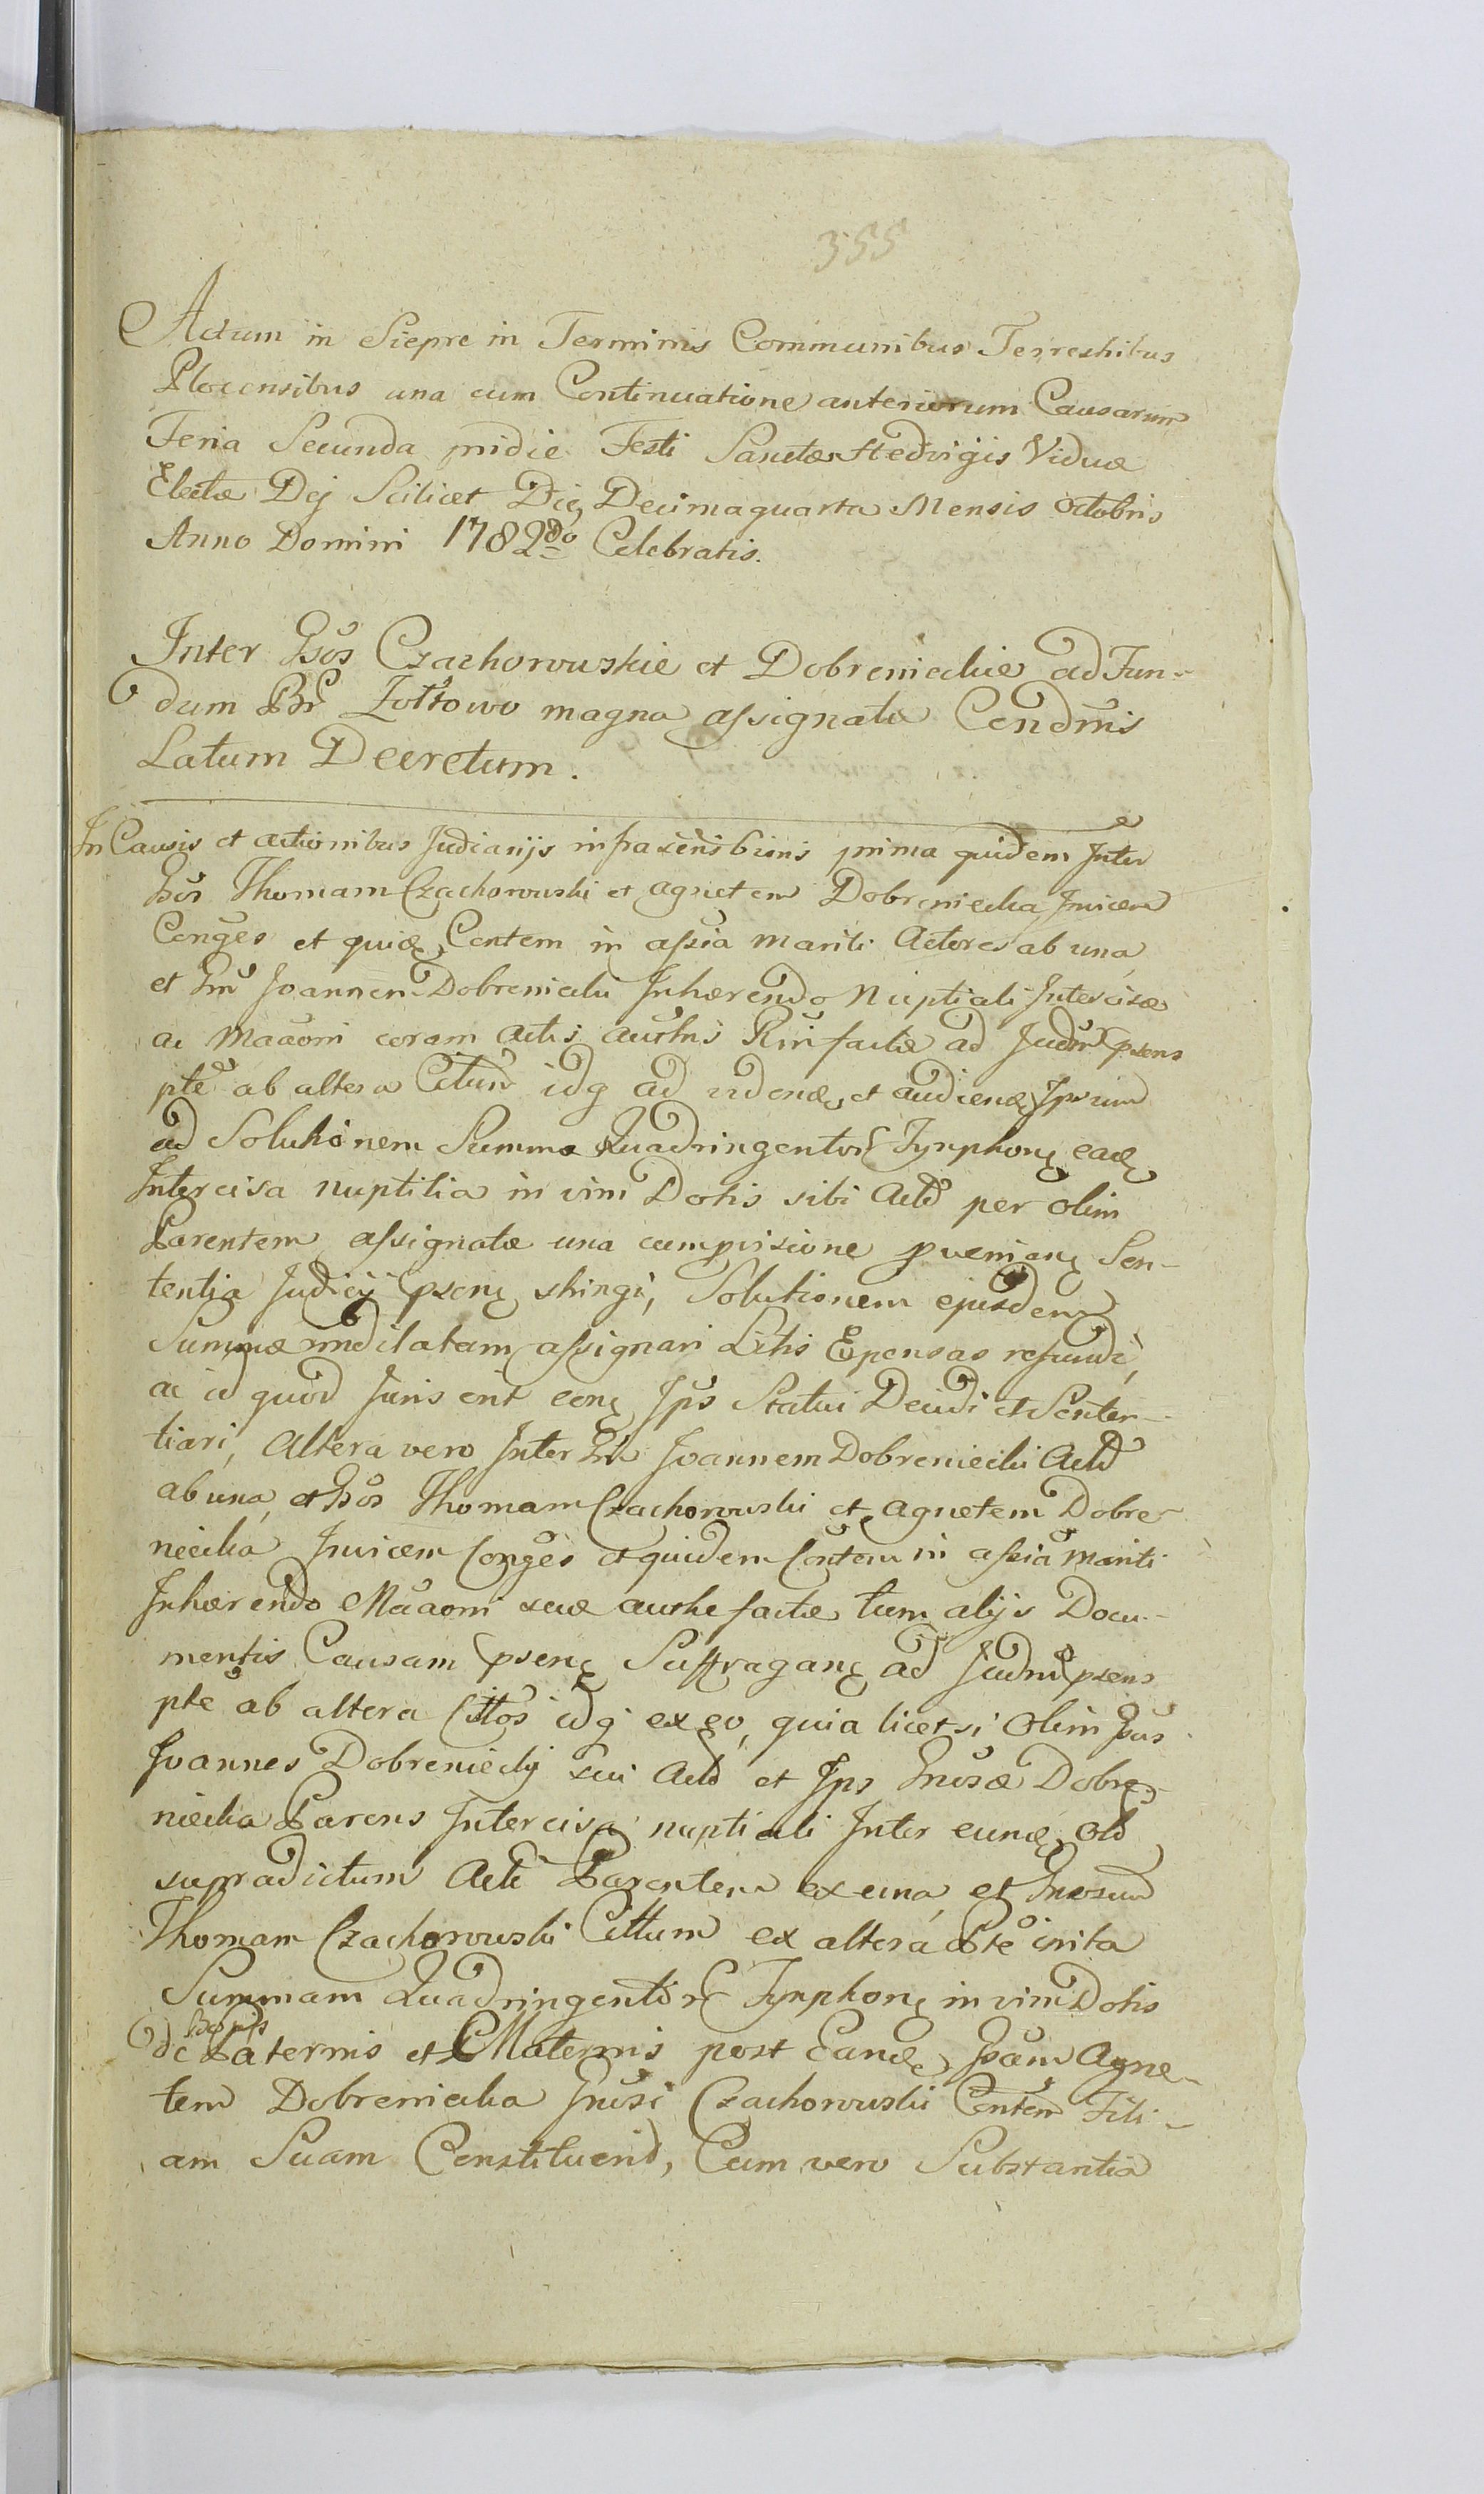 355
Actum in Siepre in Terminis Communibus Terrestribus
Plocensibus una cum Continuatione anteriorum Causarum
Feria Secunda pridie Festi Sanctæ Hedvigis Viduæ
Electæ Dej Scilicet Die Decimaquarta Mensis Octobris
Anno Domini 1782do Celebratis.
Inter Gsos Czachorowskie et Dobrenieckie ad Fun-
dum Żołtowo magna assignatæ Condnis
Latum Decretum.
In Causis et actionibus Judiciarijs infrascriptis prima quidem Inter
Gsos Thomam Czachorowski et Agnetem Dobreniecka Invicem
Conges et quidę Contem in assia mariti Actores ab una
et Gm Joannem Dobreniecki Inhærendo Nuptiali Intercisæ
ac coram Actis factæ ad Judm psens
pte ab altera Citum idq ad videnę et audienę Ipsum
ad Solutionem Summa Quadringentor Tynphonę eadę
Intercisa nuptilia in vim Dotis sibi Act per olim
Parentem assignatæ una cum pvisione pveniang Sen-
tentia Judicij psenę stringi, Solutionem ejusdem
Summæ indilatam assignari Litis Expensas refundi,
ac id quod Juris erit eonę Ips Statui Decidi et Senten-
tiari, Altera vero Inter Gm Joannem Dobreniecki Act
ab una, et Gsos Thomam Czachorowski et Agnetem Dobre-
niecka Invicem Conges et quidem Contem in assia mariti
Inhærendo suæ factæ tum alijs Docu-
mentis Causam psenę Suffraganę ad Judm psens
pte ab altera Cittos idq ex eo, quia licet si Olim Gsus
Joannes Dobreniecky sui Act et Ips Gnosæ Dobre-
niecka Parens Intercisa nuptiali Inter eundę Olo
supradictum Acti Parentem ex una, et Gnosum
Thomam Czachorowski Cittum ex altera Pte inita
Summam Quadringentor Tynphonę in vim Dotis
de Bonis Paternis et Maternis post Eandę Gsam Agne-
tem Dobreniecka Gnosi Czachorowski Contem Fili-
am Suam Constituerit, Cum vero Substantia